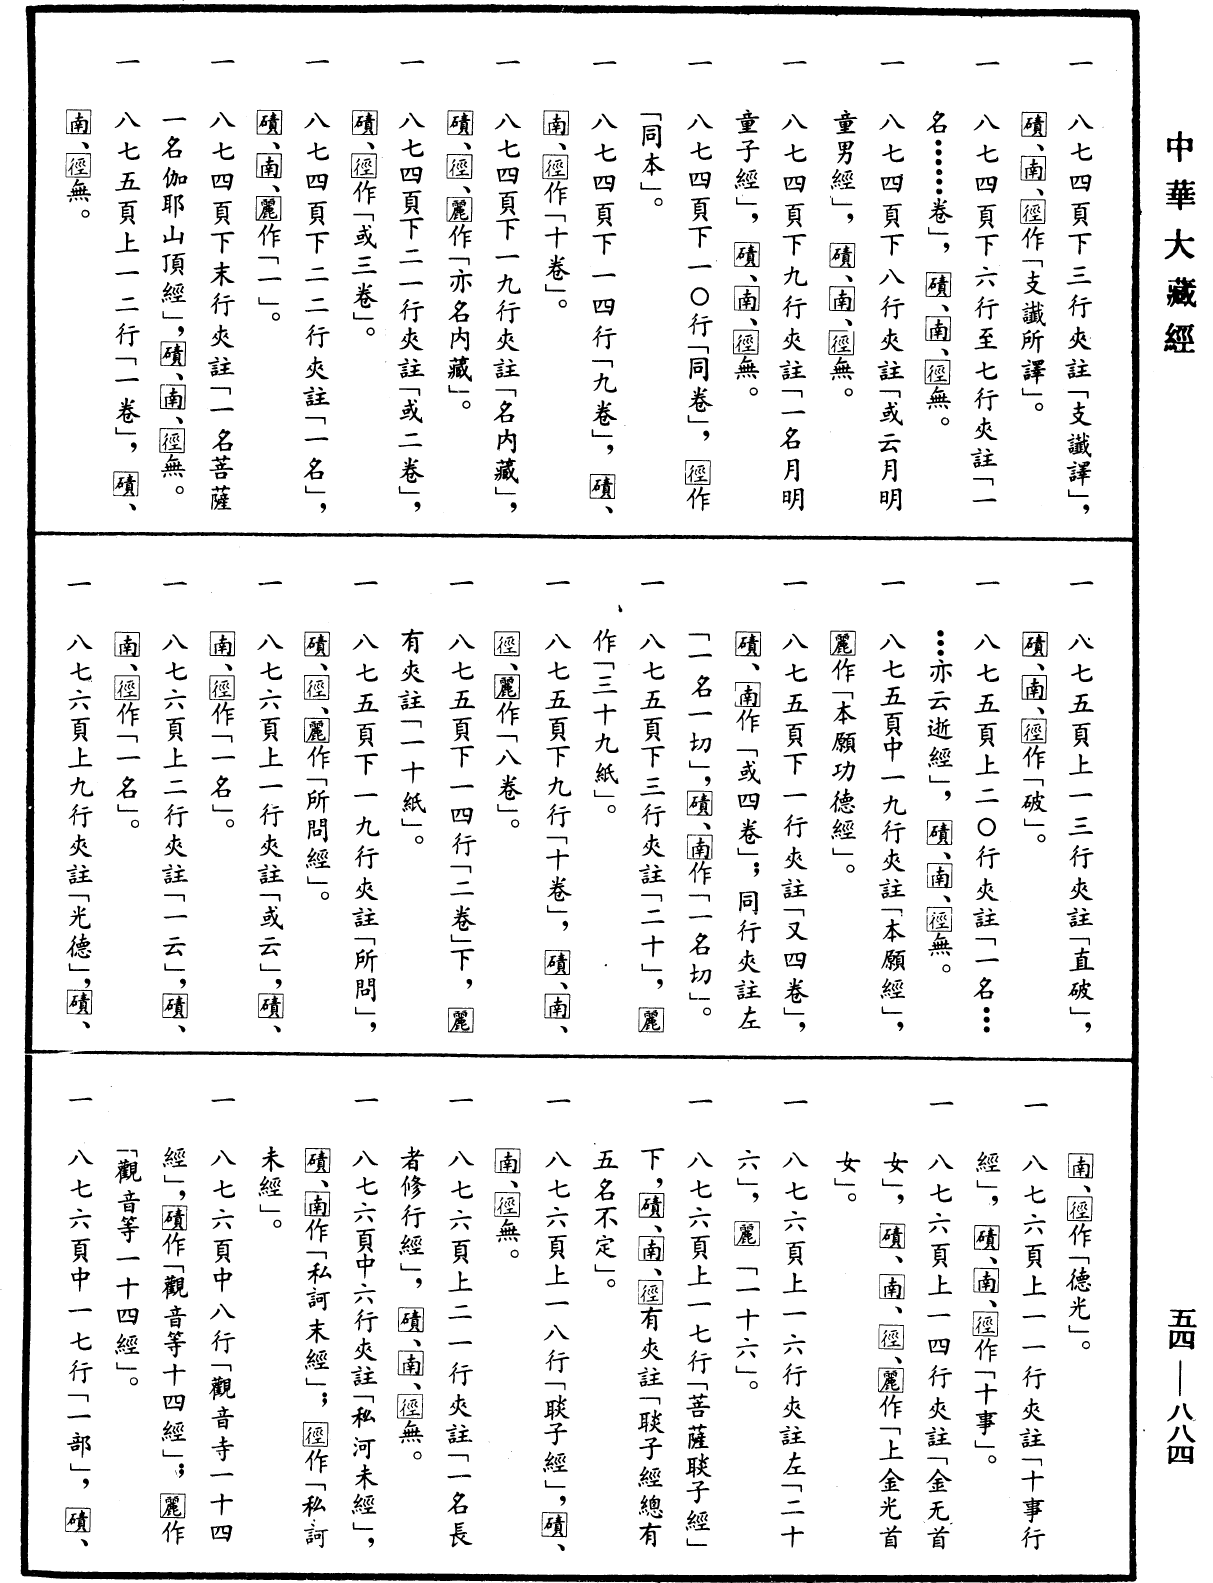 中華大藏經
一　八七四頁下三行夾註「支讖譯」，
磧、南、徑作「支讖所譯」。
一　八七四頁下六行至七行夾註「一
名……卷」，磧、南、徑無。
一　八七四頁下八行夾註「或云月明
童男經」，磧、南、徑無。
一　八七四頁下九行夾註「一名月明
童子經」，磧、南、徑無。
一　八七四頁下一〇行「同卷」，徑作
「同本」。
一　八七四頁下一四行「九卷」，磧、
南、徑作「十卷」。
一　八七四頁下一九行夾註「名内藏」，
磧、徑、麗作「亦名内藏」。
一　八七四頁下二一行夾註「或二卷」，
磧、徑作「或三卷」。
一　八七四頁下二二行夾註「一名」，
磧、南、麗作「一」。
一　八七四頁下末行夾註「一名菩薩
一名伽耶山頂經」，磧、南、徑無。
一　八七五頁上一二行「一卷」，磧、
南、徑無。
一　八七五頁上一三行夾註「直破」，
磧、南、徑作「破」。
一　八七五頁上二〇行夾註「一名…
…亦云逝經」，磧、南、徑無。
一　八七五頁中一九行夾註「本願經」，
麗作「本願功德經」。
一　八七五頁下一行夾註「又四卷」，
磧、南作「或四卷」；同行夾註左
「一名一切」，磧、南作「一名切」。
一　八七五頁下三行夾註「二十」，麗
作「三十九紙」。
一　八七五頁下九行「十卷」，磧、南、
徑、麗作「八卷」。
一　八七五頁下一四行「二卷」下，麗
有夾註「一十紙」。
一　八七五頁下一九行夾註「所問」，
磧、徑、麗作「所問經」。
一　八七六頁上一行夾註「或云」，磧、
南、徑作「一名」。
一　八七六頁上二行夾註「一云」，磧、
南、徑作「一名」。
一　八七六頁上九行夾註「光德」，磧、
南、徑作「德光」。
一　八七六頁上一一行夾註「十事行
經」，磧、南、徑作「十事」。
一　八七六頁上一四行夾註「金无首
女」，磧、南、徑、麗作「上金光首
女」。
一　八七六頁上一六行夾註左「二十
六」，麗「一十六」。
一　八七六頁上一七行「菩薩睒子經」
下，磧、南、徑有夾註「睒子經總有
五名不定」。
一　八七六頁上一八行「睒子經」，磧、
南、徑無。
一　八七六頁上二一行夾註「一名長
者修行經」，磧、南、徑無。
一　八七六頁中六行夾註「私河未經」，
磧、南作「私訶末經」；徑作「私訶
未經」。
一　八七六頁中八行「觀音寺一十四
經」，磧作「觀音等十四經」；麗作
「觀音等一十四經」。
一　八七六頁中一七行「一部」，磧、
五四—八八四